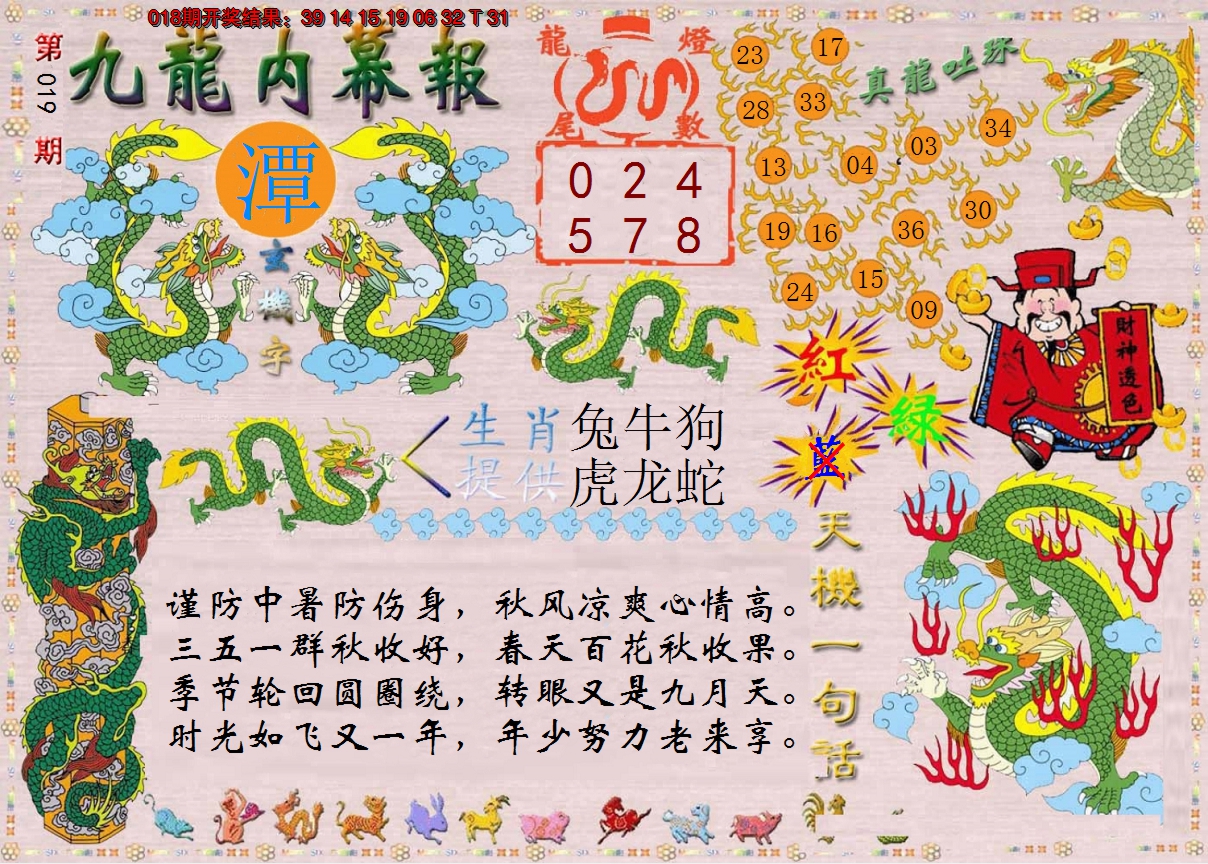 018期开奖结果：39 14 15 19 06 32 T 31
第019期
九龍内幕報
潭
玄機字
龍燈
尾數
0 2 4
5 7 8
真龍吐珠
23 17
28 33
13 04 03 34
19 16 36 30
24 15 09
財神透色
紅
緑
藍
生肖 兔牛狗
提供 虎龙蛇
天機一句話
谨防中暑防伤身，秋风凉爽心情高。
三五一群秋收好，春天百花秋收果。
季节轮回圆圈绕，转眼又是九月天。
时光如飞又一年，年少努力老来享。